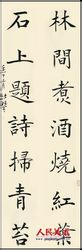 林間煮酒燒紅葉
石上題詩掃青苔
人民网